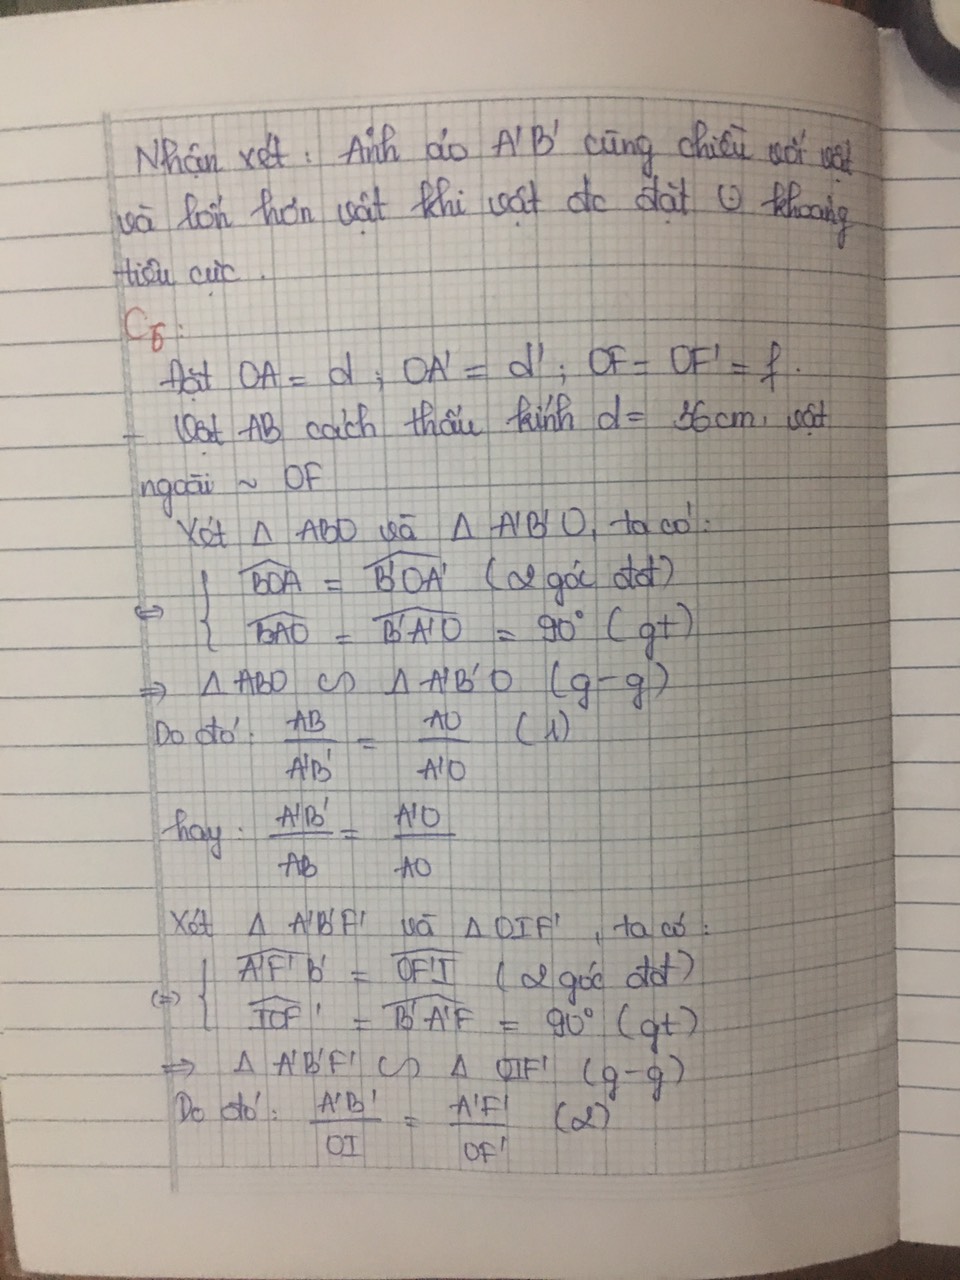 Nhận xét: Ảnh ảo A'B' cùng chiều với vật
và lớn hơn vật khi vật đc đặt khoảng
tiêu cực.
C6:
Đặt OA = d; OA' = d'; OF = OF' = f.
- Vật AB cách thấu kính d = 36cm, vật
ngoài ~ OF
Xét Δ ABO và Δ A'B'O, ta có:
BOA = B'OA' (2 góc đđ)
⇔ { BAO = B'A'O = 90° (gt)
⇒ Δ ABO ∽ Δ A'B'O (g-g)
Do đó: AB/A'B' = AO/A'O (1)
hay: A'B'/AB = A'O/AO
Xét Δ A'B'F' và Δ OIF', ta có:
A'F'B' = OF'I (2 góc đđ)
(⇔) { IOF' = B'A'F = 90° (gt)
⇒ Δ A'B'F' ∽ Δ OIF' (g-g)
Do đó: A'B'/OI = A'F'/OF' (2)